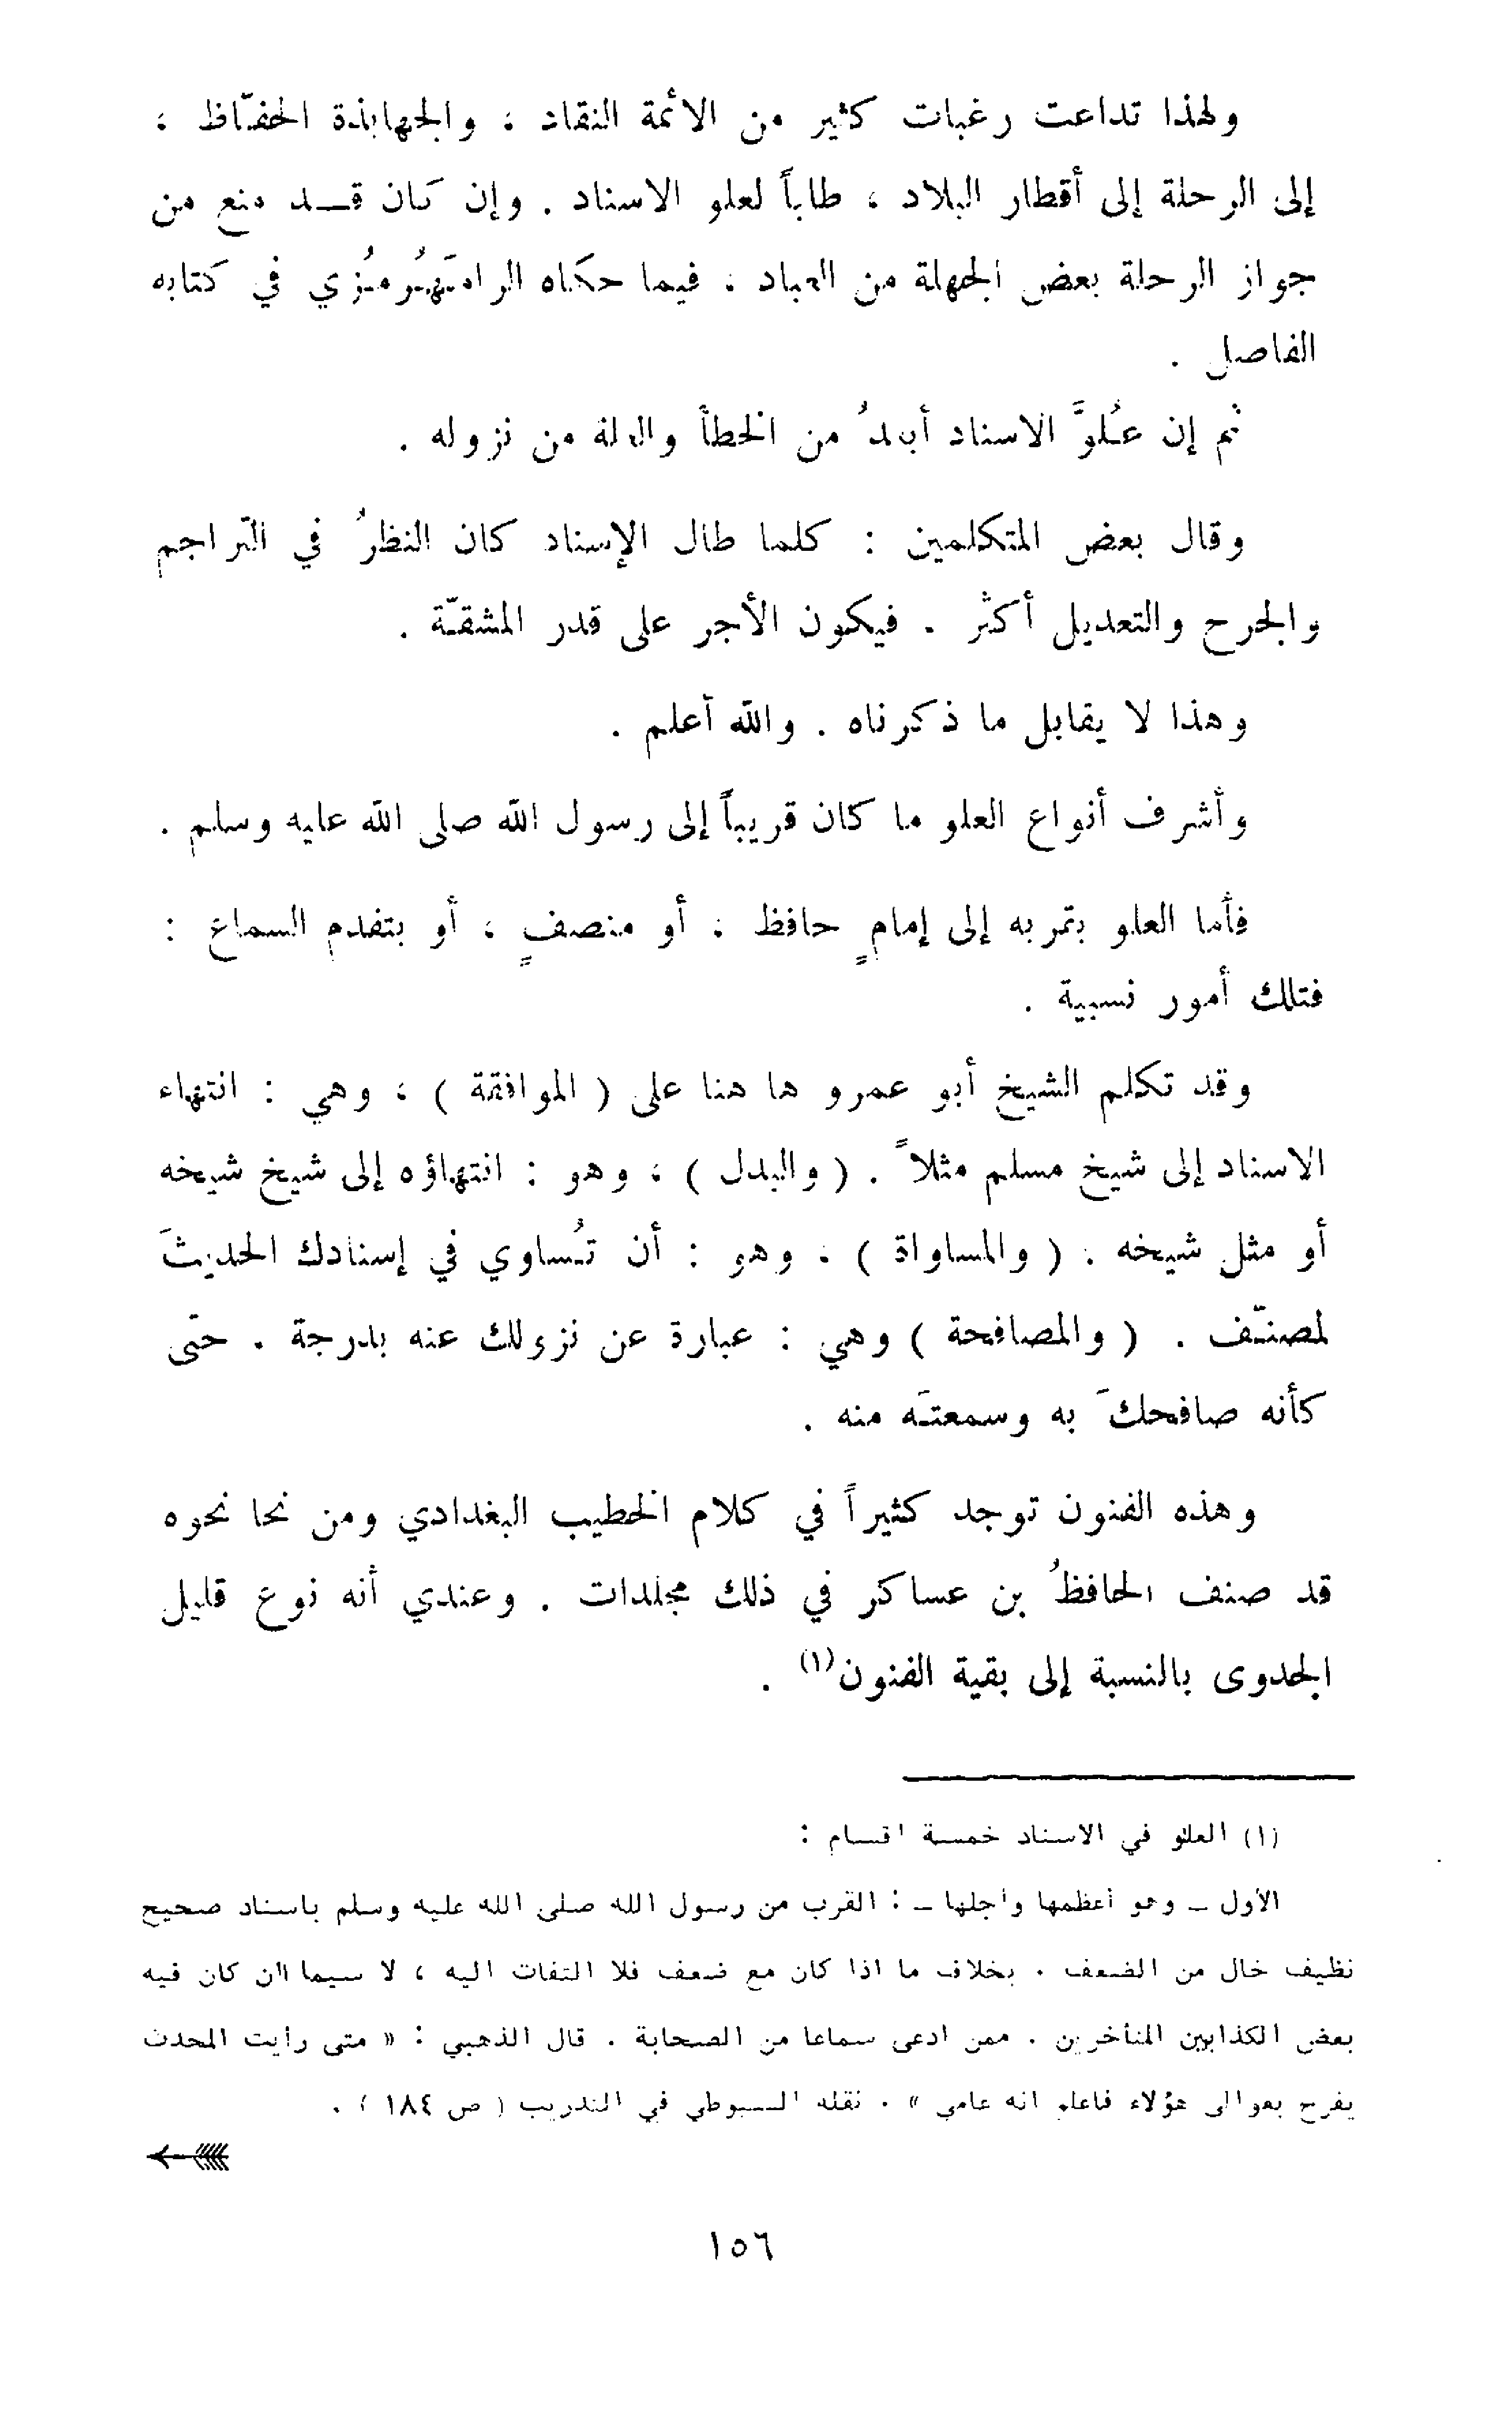 ولهذا تداعت رغبات كثير من الائمة النقاد ، والجهابذة الحفّاظ ،
إلى الرحلة إلى أقطار البلاد ، طلباً لعلو الاسناد . وإن كان قـد منع من
جواز الرحلة بعض الجهلة من العباد ، فيما حكاه الرامَهُرمُزي في كتابه
الفاصل .
ثم إن عُلوَّ الاسناد أبعدُ من الخطأ والعلة من نزوله .
وقال بعض المتكلمين : كلما طال الإسناد كان النظرُ في التراجم
والجرح والتعديل أكثر . فيكون الأجر على قدر المشقّة .
وهذا لا يقابل ما ذكرناه . والله أعلم .
وأشرف أنواع العلو ما كان قريباً إلى رسول الله صلى الله عليه وسلم .
فأما العلو بقربه إلى إمامٍ حافظ ، أو مصنفٍ ، أو بتقدم السماع :
فتلك أمور نسبية .
وقد تكلم الشيخ أبو عمرو ها هنا على ( الموافقة ) ، وهي : انتهاء
الاسناد إلى شيخ مسلم مثلاً . ( والبدل ) ، وهو : انتهاؤه إلى شيخ شيخه
أو مثل شيخه . ( والمساواة ) ، وهو : أن تُساوي في إسنادك الحديثَ
لمصنّف . ( والمصافحة ) وهي : عبارة عن نزولك عنه بدرجة . حتى
كأنه صافحكَ به وسمعتَه منه .
وهذه الفنون توجد كثيراً في كلام الخطيب البغدادي ومن نحا نحوه
قد صنف الحافظُ بن عساكر في ذلك مجلدات . وعندي أنه نوع قليل
الجدوى بالنسبة إلى بقية الفنون(١) .
(١) العلو في الاسناد خمسة اقسام :
الأول – وهو أعظمها وأجلها – : القرب من رسول الله صلى الله عليه وسلم باسناد صحيح
نظيف خال من الضعف . بخلاف ما اذا كان مع ضعف فلا التفات اليه ، لا سيما ان كان فيه
بعض الكذابين المتأخرين . ممن ادعى سماعا من الصحابة . قال الذهبي : « متى رأيت المحدث
يفرح بعوالي هؤلاء فاعلم انه عامي » . نقله السيوطي في التدريب ( ص ١٨٤ ) .
١٥٦